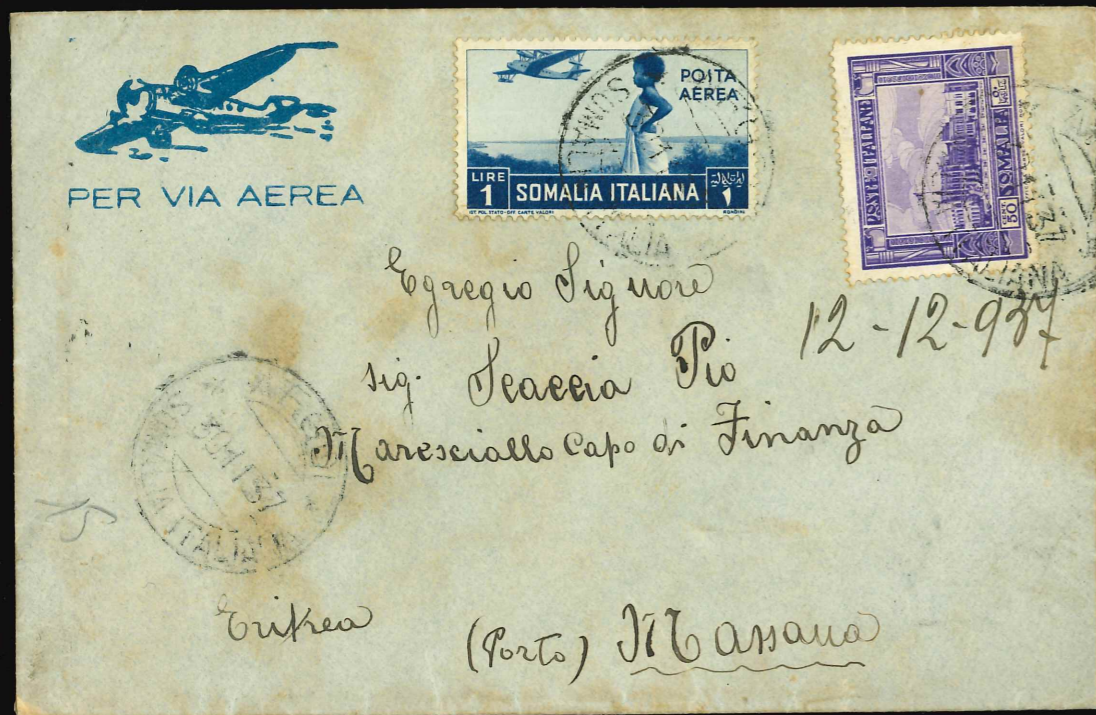 PER VIA AEREA
POSTA
AEREA
LIRE
1
SOMALIA ITALIANA
IST. POL. STATO-OFF. CARTE VALORI
POSTE ITALIANE
CENT
50
SOMALIA
Egregio Signore
sig. Scaccia Pio
Maresciallo Capo di Finanza
12-12-937
SOMALIA ITALIANA
37
15
Eritrea
(Porto) Massaua